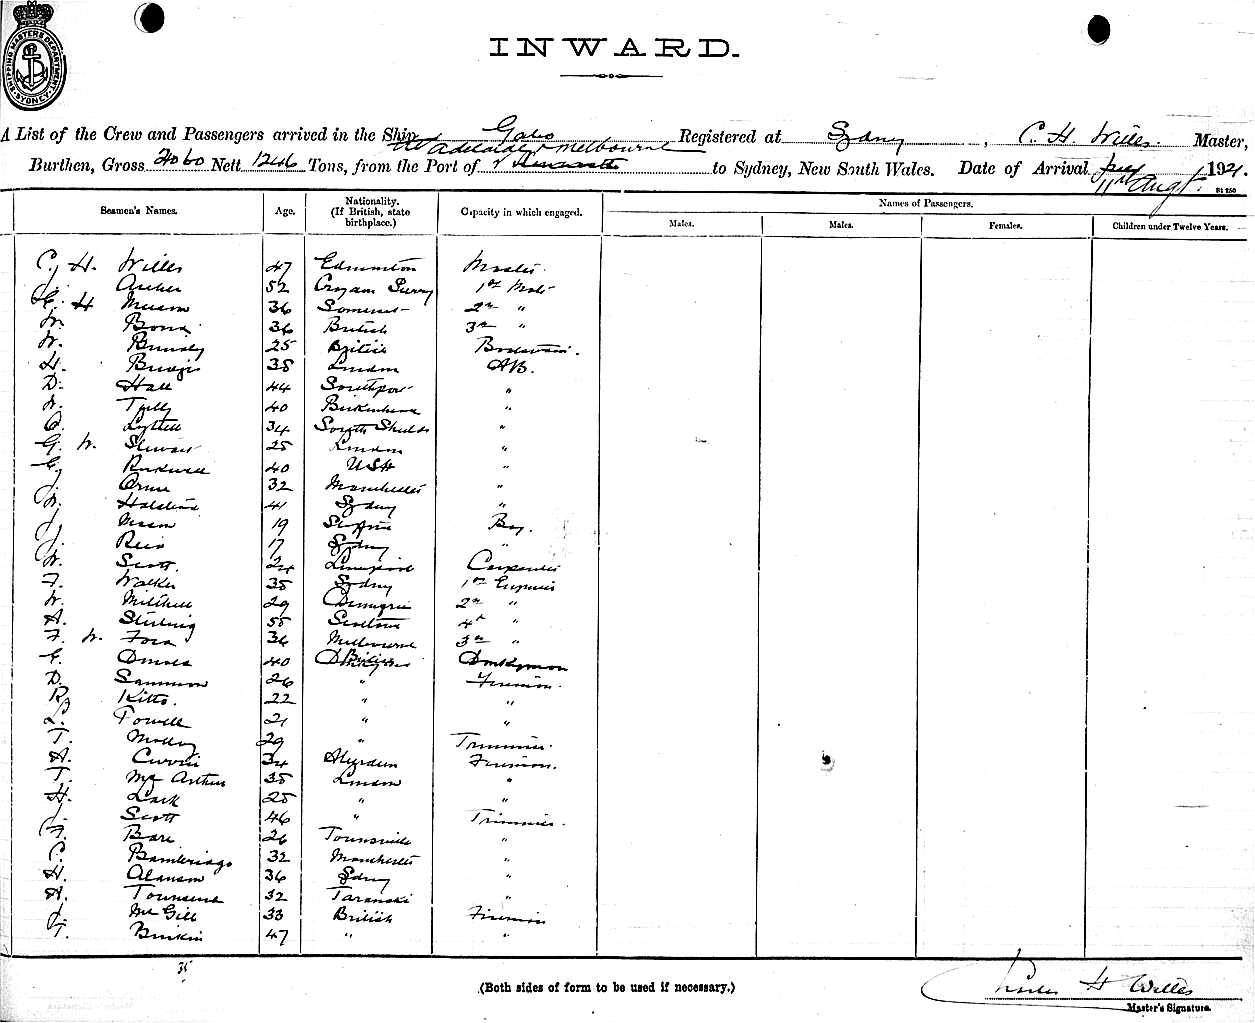 SHIPPING MASTERS DEPARTMENT SYDNEY
INWARD.
A List of the Crew and Passengers arrived in the Ship Gabo Registered at Sydney, C. H. Willes. Master,
Via Adelaide & Melbourne
Burthen, Gross 2060 Nett 1246 Tons, from the Port of to Sydney, New South Wales. Date of Arrival 11th Augt. 1921.
Seamen's Names. Age. Nationality. (If British, state birthplace.) Capacity in which engaged. Names of Passengers.
Males. Males. Females. Children under Twelve Years.
C. H. Willes 47 Edmonton Master
J. Archer 52 Surry 1st Mate
H 36 Somerset 2nd "
W. Bond 36 British 3rd "
W. 25 British Boatswain.
H. 38 London AB.
D. Hall 44 Southport "
W. 40 Birkenhead "
34 South Shields "
G. W. Stewart 25 London "
40 USA "
J. Orme 32 Manchester "
W. 41 Sydney "
J. 19 Boy.
J. Reid 17 Sydney "
W. Scott. 24 Liverpool Carpenter
F. Walker 35 Sydney 1st Engineer
W. Mitchell 29 2nd "
A. Stirling 55 Scotland 4th "
F. W. Ford 36 Melbourne 3rd "
40 British Donkyman
D. 26 " Fireman.
R. Kitto. 22 " "
L. Powell 21 " "
T. 29 " Trimmer.
A. Currie 34 Aberdeen Fireman.
T. McArthur 35 London "
H. Lark 25 " "
J. Scott 46 " Trimmer.
F. 26 Townsville "
C. Bambridge 32 Manchester "
H. 36 Sydney "
A. Townsend 32 Taranaki "
J. McGill 33 British Fireman
T. 47 " "
35
(Both sides of form to be used if necessary.)
Charles H Willes
Master's Signature.